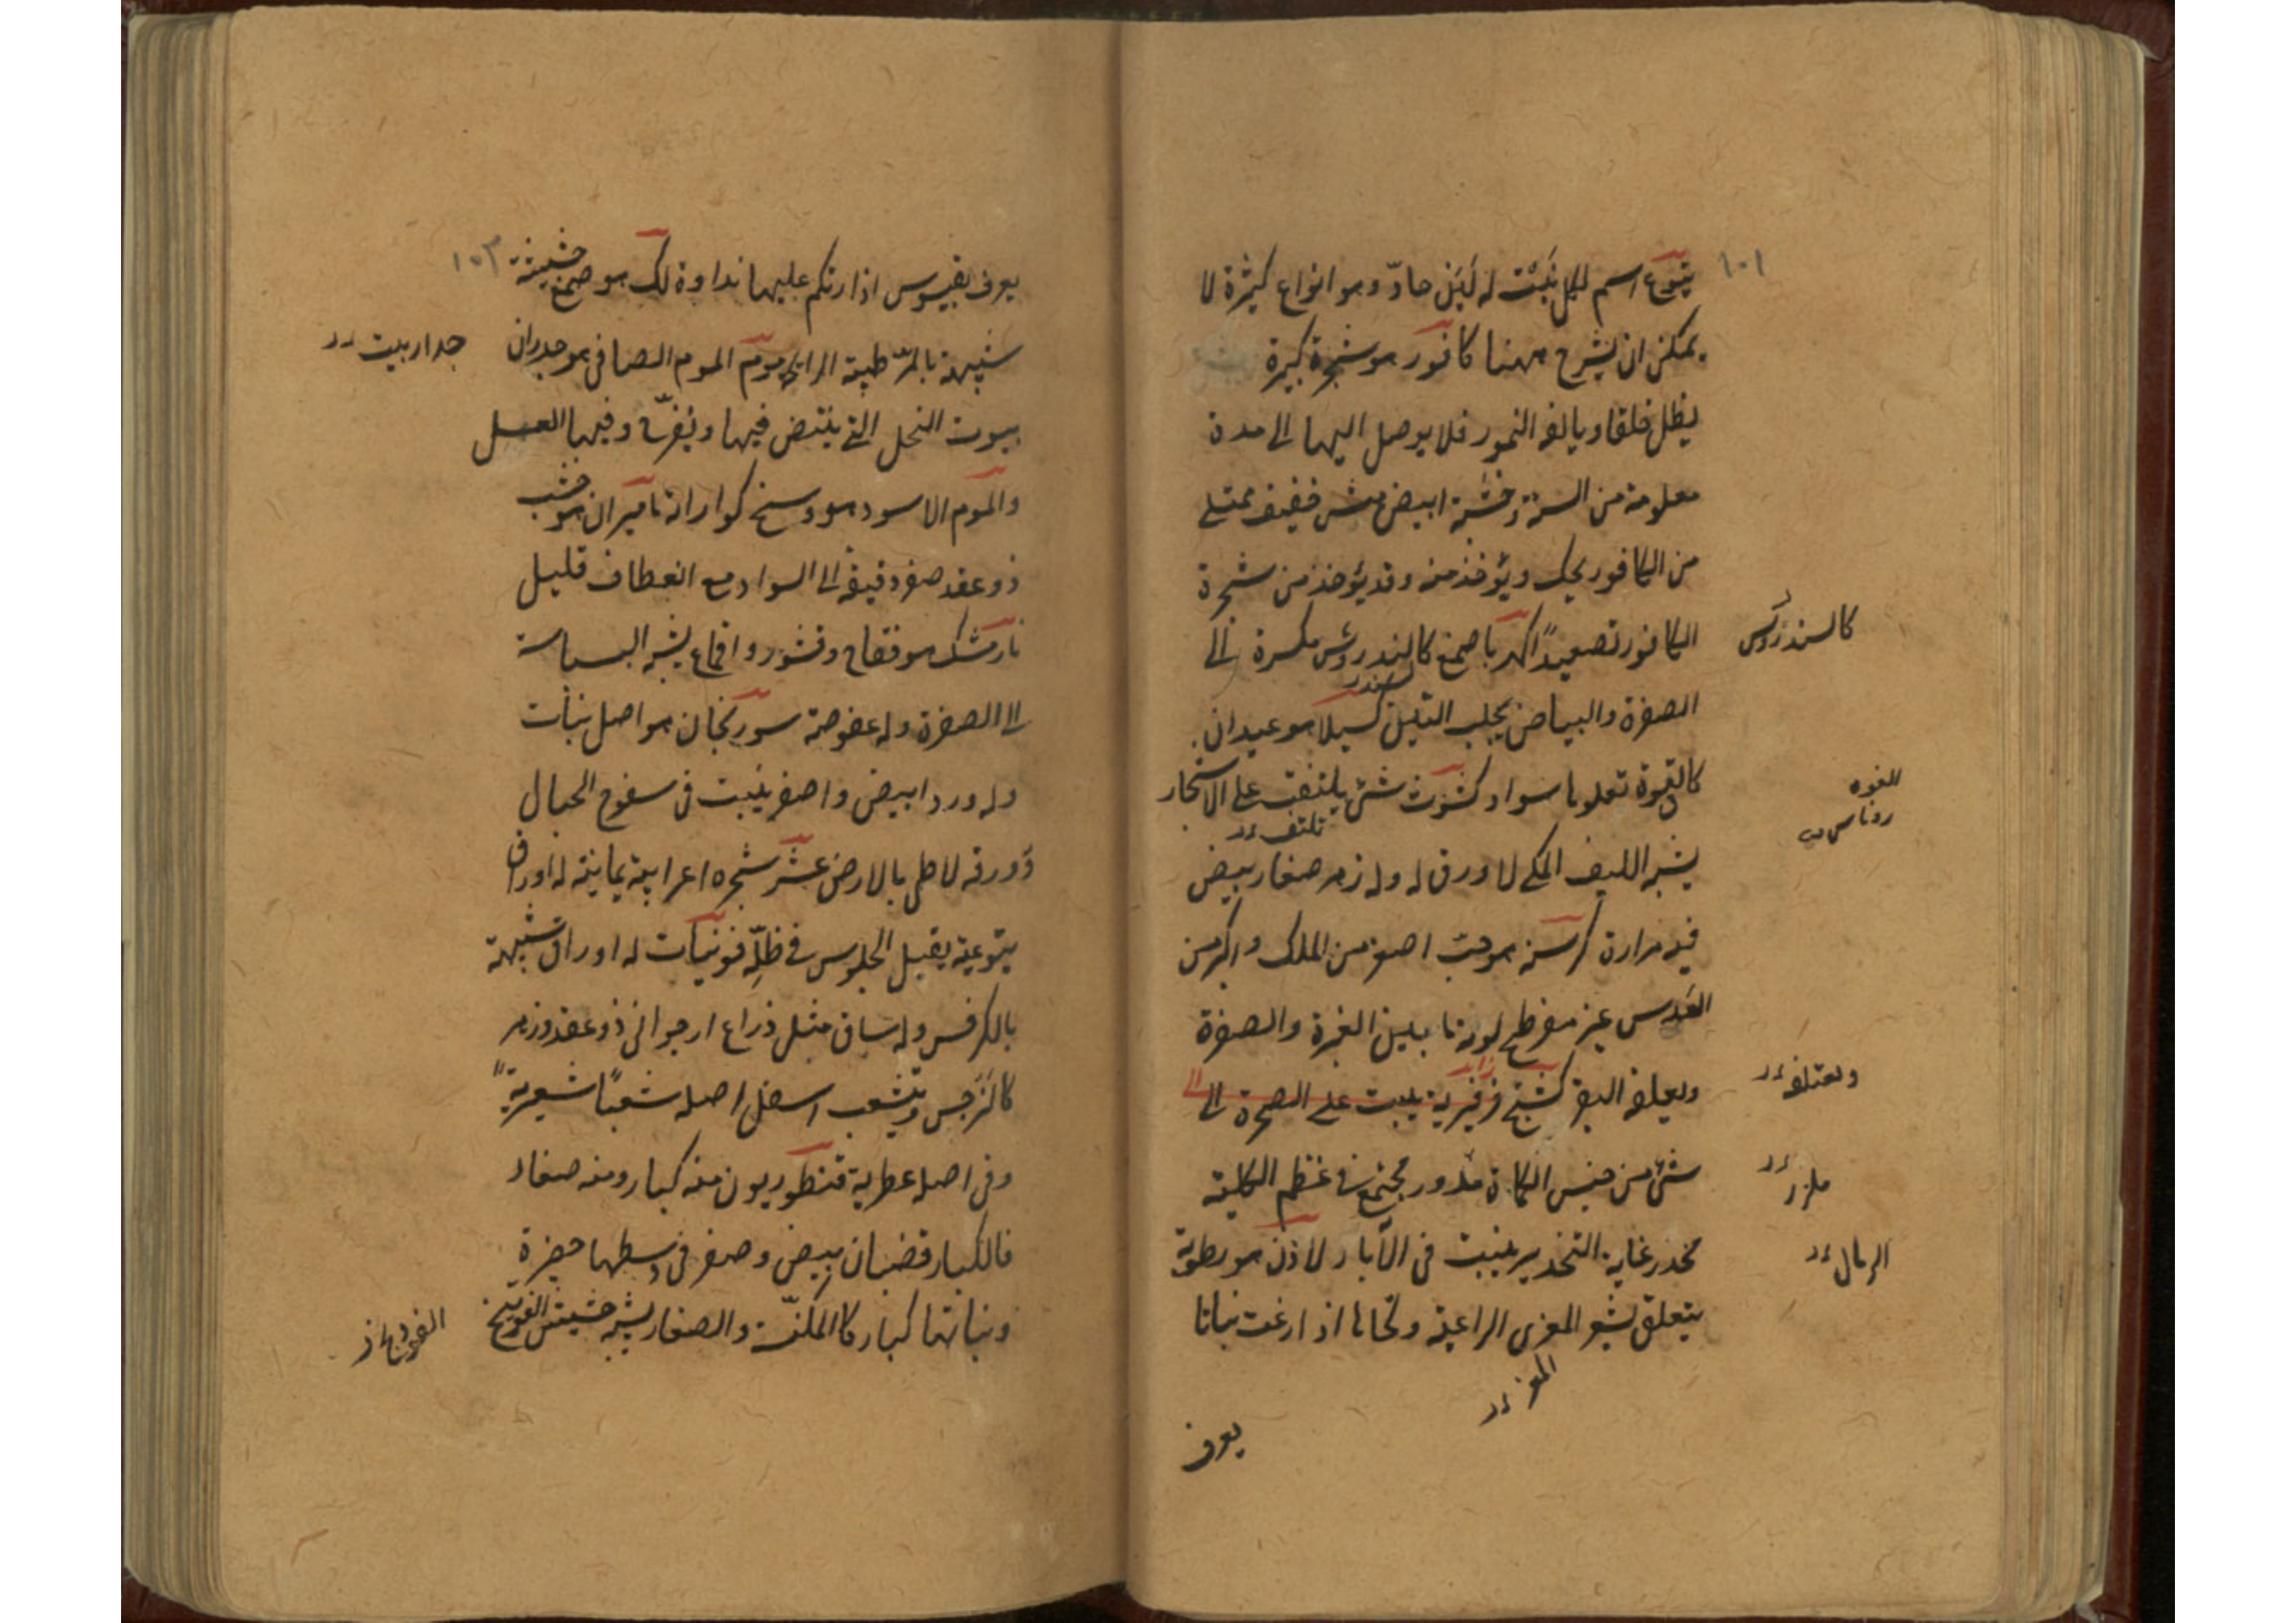 ١٠١
يتوع اسم لكل نبت له لبن حادّ وهو انواع كثيرة لا
يمكن ان يشرح ههنا كافور هو شجرة كبيرة
يظل خلقا ويالفه النمور فلا يوصل اليها الى مدة
معلومة من السنة وخشبه ابيض هش خفيف يمتلى
من الكافور يحك ويؤخذ منه وقد يؤخذ من شجرة
الكافور تصعيداً كهربا صمغ كالسندروس مكسره الى
كالسندروس
الصفرة والبياض يجلب التبن كسيلا هو عيدان
كالفوة تعلوها سواد كشوث شئ يلتف على الاشجار
الفوه
روناس
تلتف
يشبه الليف المكى لا ورق له وله زهر صغار بيض
فيه مرارة كرسنه هو حب اصغر من الملك واكبر من
العدس غير مفرطح لونه ما بين الغبرة والصفرة
ويعلفه البقر كشنج زفيرية ينبت على الصخرة الى
وتعتلفه
شئ من جنس الكماة مدور مجتمع فى عظم الكلية
ملزز
مخدر غاية التخدير ينبت فى الآبار لاذن هو رطوبة
الرمال
يتعلق بشعر المعزى الراعية ولحاها اذا رعت نباتا
المعز
يعرف
١٠٢
يعرف بقيسوس اذا ارتكم عليها نداوة لك هو صمغ حشيشة
شبيهة بالمرّ طيبة الرايحه موم الموم الصافى هو جدران
جدار بيت
بيوت النحل التى يبتض فيها ويفرّخ وفيها العسل
والموم الاسود هو وسخ كواراته ماميران هو خشب
ذو عقد صفر دقيقة الى السواد مع انعطاف قليل
نارمشك هو فقاح وقشور واقماع يشبه البسباسة
الى الصفرة وله عفوصة سورنجان هو اصل نبات
وله ورد ابيض واصفر ينبت فى سفوح الجبال
وورقه لاطى بالارض عشر شجره اعرابية يمانية له اوراق
يتوعية يقتل الجلوس فى ظلّه فو نبات له اوراق شبيهة
بالكرفس وله ساق مثل ذراع ارجوانى ذو عقد وزهر
كالنرجس ويتشعب اسفل اصله شعبًا شعيريةً
وفى اصله عطرية قنطوريون منه كبار ومنه صغار
فالكبار قضبان بيض وصفر فى وسطها حفرة
ونباتها كبار كالمكنسة والصغار يشبه حشيش الفوتنج
الفودنج